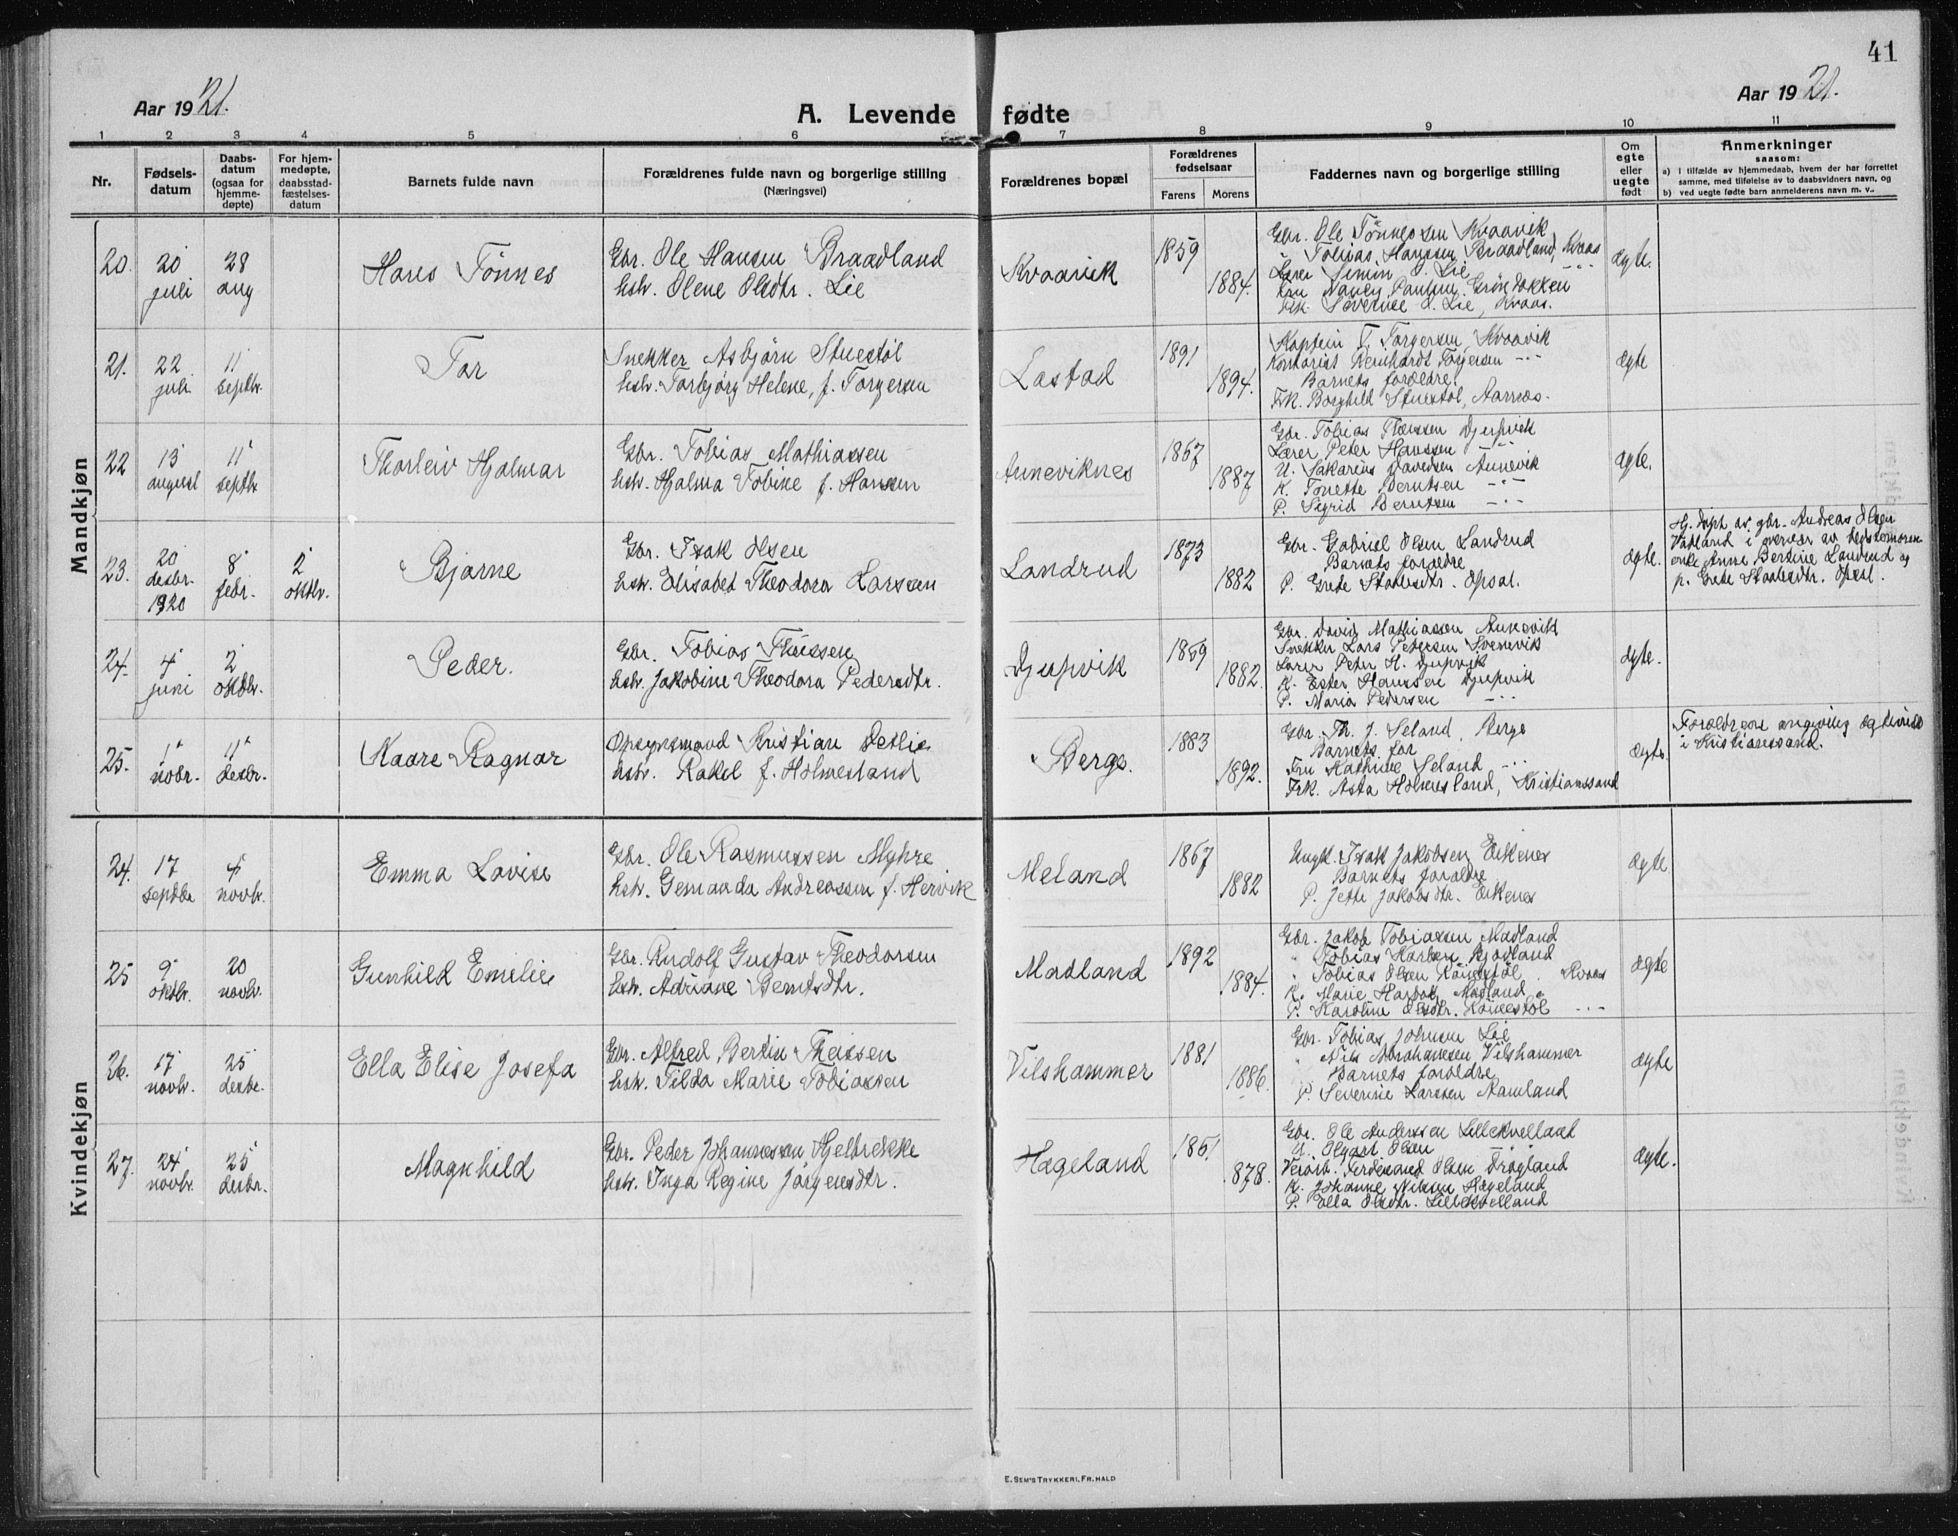 41
Aar 1921.
A. Levende fødte
Aar 1921.
1 2 3 4 5 6 7 8 9 10 11
Nr.
Fødsels-
datum
Daabs-
datum
(ogsaa for
hjemme-
døpte)
For hjem-
medøpte,
daabsstad-
fæstelses-
datum
Barnets fulde navn
Forældrenes fulde navn og borgerlige stilling
(Næringsvei)
Forældrenes bopæl
Forældrenes
fødselsaar
Farens Morens
Faddernes navn og borgerlige stilling
Om
egte
eller
uegte
født
Anmerkninger
saasom:
a) I tilfælde av hjemmedaab, hvem der har forrettet
samme, med tilføielse av to daabsvidners navn, og
b) ved uegte fødte barn anmelderens navn m. v..
Mandkjøn
20.
20
juli
28
aug
Hans Tönnes
Gbr. Ole Hansen Braadland
hstr. Olene Olsdtr. Lie
Kvaavik
1859
1884.
Gbr. Ole Tönnessen Kvaavik
" Tobias Hanssen Braadland, Kvaas
Lærer Simon O. Lie -"-
Fru Nancy Paulsen, Gröndokken
Frk. Severine O. Lie, Kvaas.
ægte.
21.
22
juli
11
septbr.
Tor
Snekker Asbjörn Stuestöl
hstr. Torbjörg Helene, f. Torgersen
Lastad
1891
1894.
Kaptein T. Torgersen, Kvaavik
Kontorist Reinhardt Torgersen -"-
Barnets forældre.
Frk. Borghild Stuestöl, Aarnes.
ægte
22
13
august
11
septbr
Thorleiv Hjalmar
Gbr. Tobias Mathiassen
hstr. Hjalma Tobine f. Hansen
Auneviknes
1867
1887
Gbr. Tobias Theissen Djupvik
Lærer Peter Hanssen -"-
U. Sakarias Davidsen Aunevik
K. Tonette Berntsen -"-
P. Sigrid Berntsen -"-
ægte.
23.
20
desbr.
1920
8
febr.
2
oktbr.
Bjarne
Gbr. Isak Olsen
hstr. Elisabet Theodora Larssen
Landrud
1873
1882
Gbr. Gabriel Olsen Landrud
Barnets forældre
P. Grete Staalesdtr. Opsal.
ægte.
Hj. döpt av gbr. Andreas Olsen
Vatland i overvær av
enke Anne Bertine Landrud og
p. Grete Staalesdtr. Opsal.
24.
4
juni
2
oktbr.
Peder.
Gbr. Tobias Theissen
hstr. Jakobine Theodora Pedersdtr.
Djupvik
1859
1882.
Gbr. David Mathiassen Aunevik
Snekker Lars Petersen Svenevik
Lærer Peter H. Djupvik
K. Ester Hanssen Djupvik
P. Maria Pedersen -"-
ægte.
25.
1
novbr.
11
desbr.
Kaare Ragnar
Opsynsmand Kristian Detlie
hstr. Rakel f. Holmesland
Berge.
1883
1892.
Gbr. Th. J. Seland, Berge
Barnets far
Fru Kathine Seland -"-
Frk. Asta Holmesland, Kristianssand
ægte.
Forældrene angivelig
i Kristianssand.
Kvindekjøn
24.
17
septbr
4
novbr.
Emma Lovise
Gbr. Ole Rasmussen Myhre
hstr. Gemaada Andreassen f. Hervik
Meland
1867
1882
Ungk. Isak Jakobsen Eikenes
Barnets forældre
P. Jette Jakobsdtr. Eikenes
ægte
25
9
oktbr.
20
novbr.
Gunhild Emilie
Gbr. Rudolf Gustav Theodorsen
hstr. Adriane Berntsdtr.
Madland
1892
1884.
Gbr. Jakob Tobiassen Madland
" Tobias Karlsen Kjodland
" Tobias Olsen Röinestöl Kvaas
K. Marie Madland "
P. Karoline Olsdtr. Röinestöl -"-
ægte
26.
17
novbr.
25
desbr.
Ella Elise Josefa
Gbr. Alfred Bertin Theissen
hstr. Tilda Marie Tobiassen
Vilshammer
1881
1886.
Gbr. Tobias Johnsen Lie
" Nils Abrahamsen Vilshammer
Barnets forældre
P. Severine Larssen Aamland
ægte
27.
24
novbr.
25
desbr.
Magnhild
Gbr. Peder Johannessen Hjelbrekke
hstr. Inga Regine Jörgensdtr.
Hægeland
1861
1878.
Gbr. Ole Anderssen Lillekvelland
U. Olgart Olsen
Verörb. Ferdinand Olsen Trögland
K. Johanne Nilssen Hægeland
P. Ella Olsdtr. Lillekvelland
ægte.
E. SEM'S TRYKKERI, FR.HALD